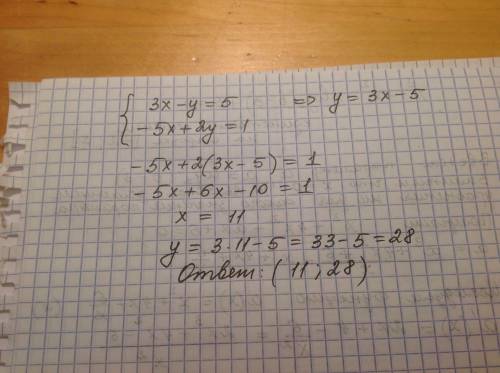 3x-y=5 => y=3x-5
-5x+2y=1
-5x+2(3x-5)=1
-5x+6x-10=1
x = 11
y = 3·11-5=33-5=28
Ответ: (11;28)